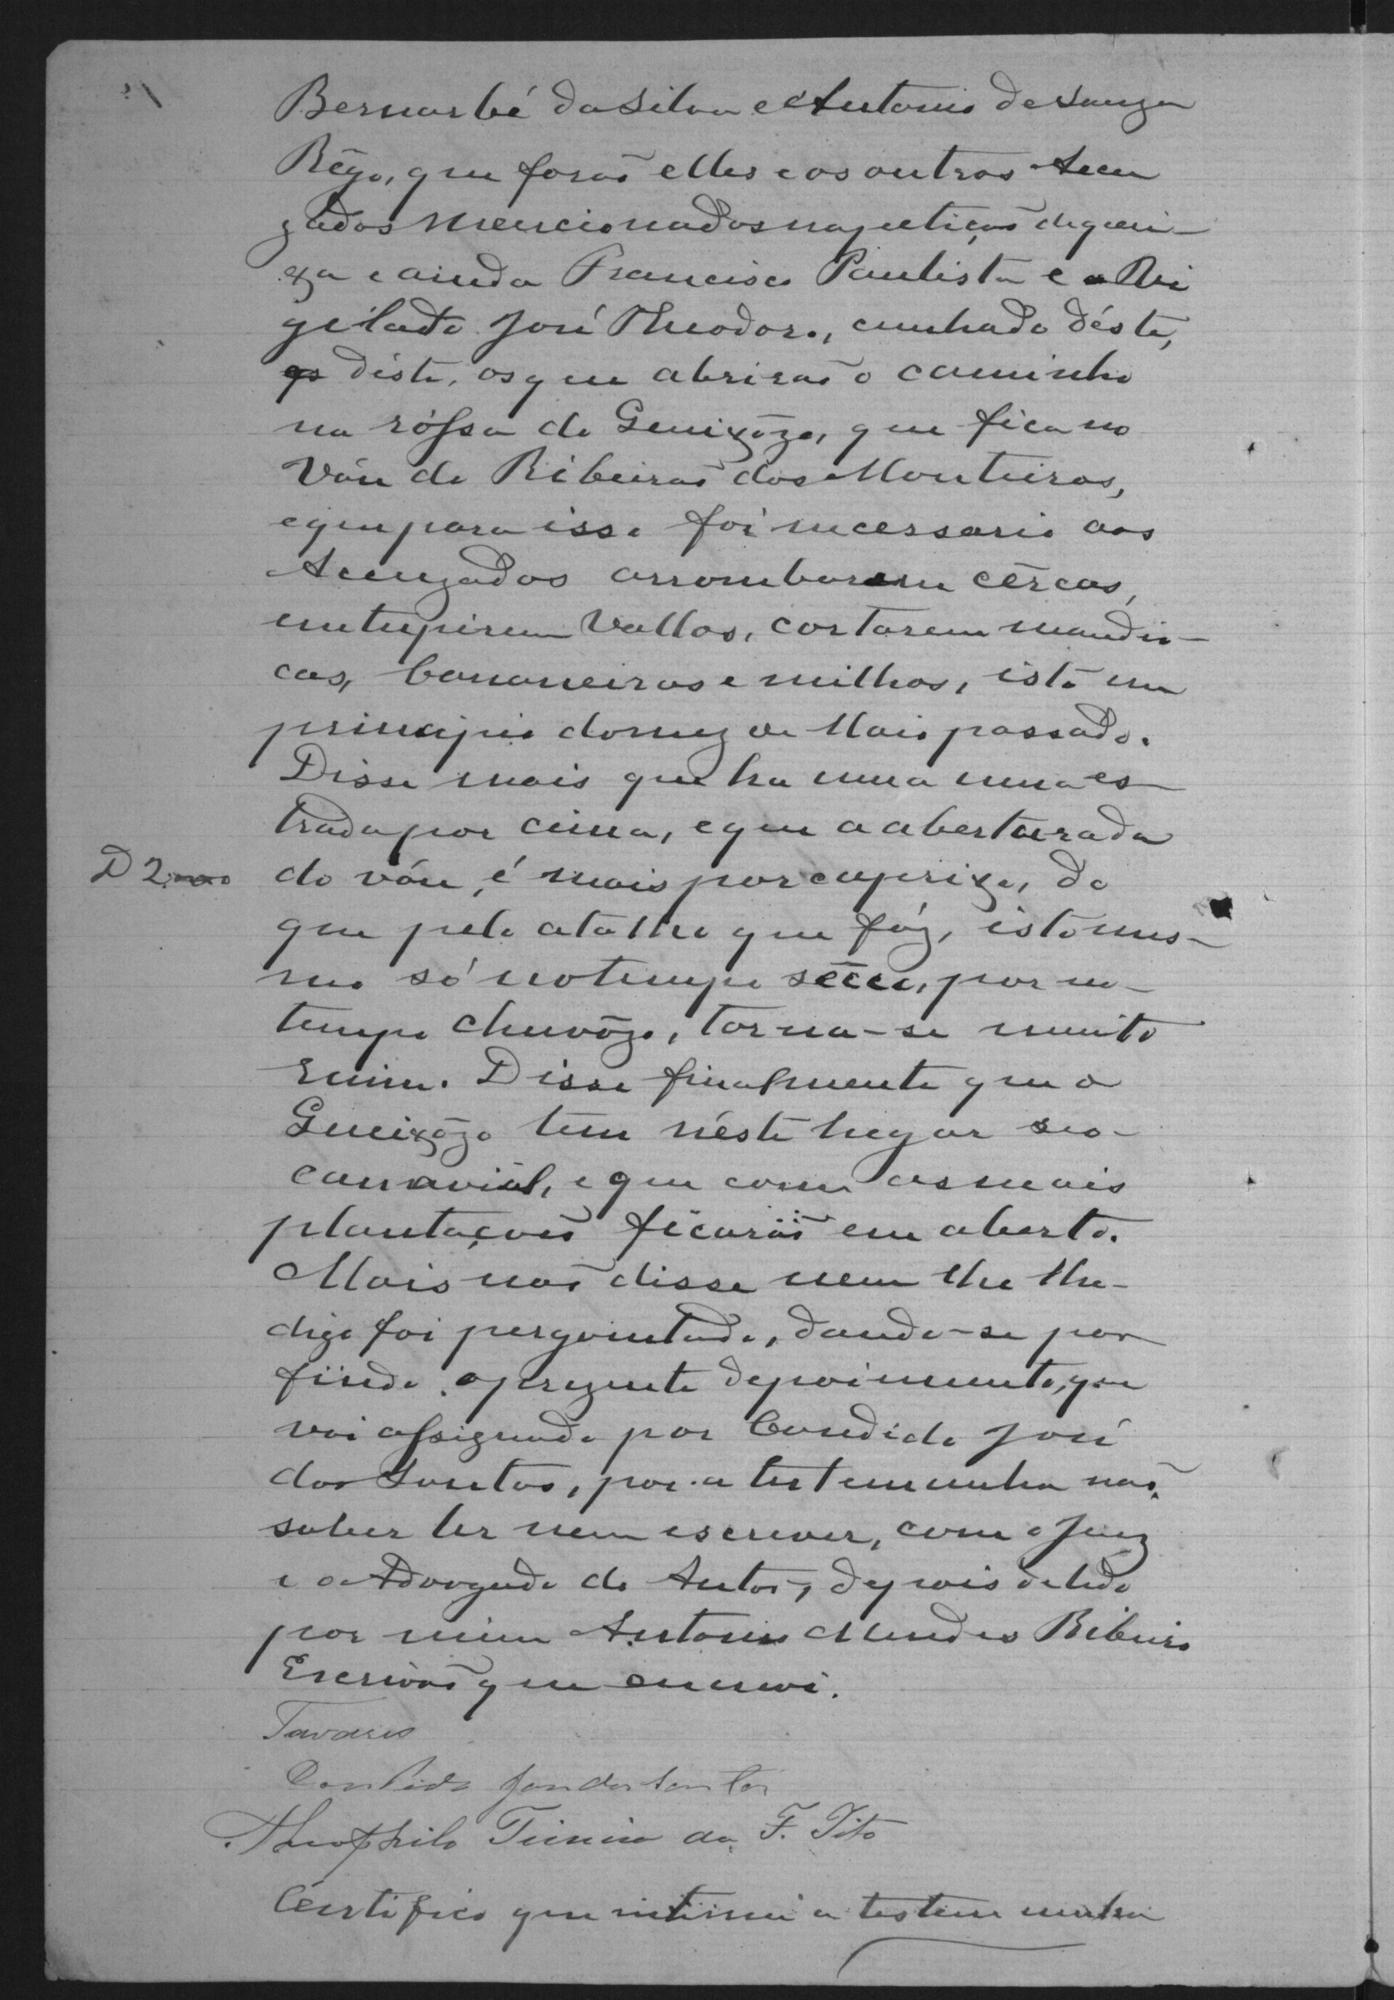 Bernarbé da Silva e Antonio de Souza
Rêgo, que forão elles e os outros Accu
zados mencionados na petição de quei-
xa e ainda Francisco Paulista e o Vi
gilato José Theodoro, cunhado déste,
déste, os que abrirão o caminho
na róssa do Queixôzo, que fica no
Váu do Ribeirão dos Monteiros,
e que para isso foi necessario aos
Accuzados arrombarem cêrcas,
entupirem Vallos, cortarem mandio-
cas, bananeiras e milhos, isto em
principio do mez de Maio passado.
Disse mais que ha uma uma es-
trada por cima, e que a abertura da
D 2 do váu, é mais por caprixo, do
que pelo atalho que fáz, isto mes-
mo só no tempo sêcco, por no-
tempo chuvôzo, torna-se muito
ruim. Disse finalmente que o
Queixôzo tem néste lugar seo
cannavial, e que com as mais
plantações ficarão em aberto.
Mais não disse nem lhe lhe-
digo foi perguntado, dando-se por
findo o prezente depoimento, que
vai assignado por Candido José
dos Santos, por a testemunha não
saber ler nem escrever, com o Juiz
e o Advogado do Autor, depois de lido
por mim Antonio Mendes Ribeiro
Escrivão que escrevi.
Tavares
Candido José dos Santos
Theophilo da F. Tito
Certifico que intimei a testemunha